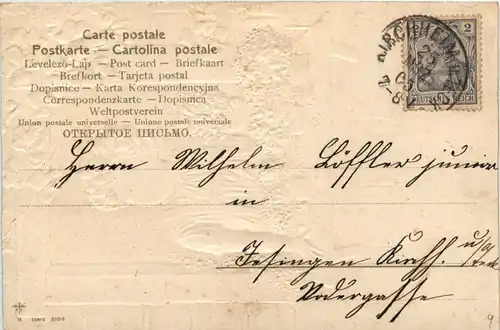 Carte postale
Postkarte — Cartolina postale
Levelező-Lap — Post card — Briefkaart
Brefkort — Tarjeta postal
Dopisnice — Karta Korespondencyjna
Correspondenzkarte — Dopisnica
Weltpostverein
Union postale universelle — Unione postale universale
ОТКРЫТОЕ ПИСЬМО.
2
KIRCHHEIM
DEUTSCHES REICH
Herrn Wilhelm Löffler junior
in
Jesingen Kirchh. u/Teck
Vodergasse
9